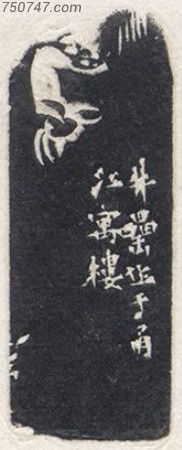 750747.com
井罍作于甬
江寓楼